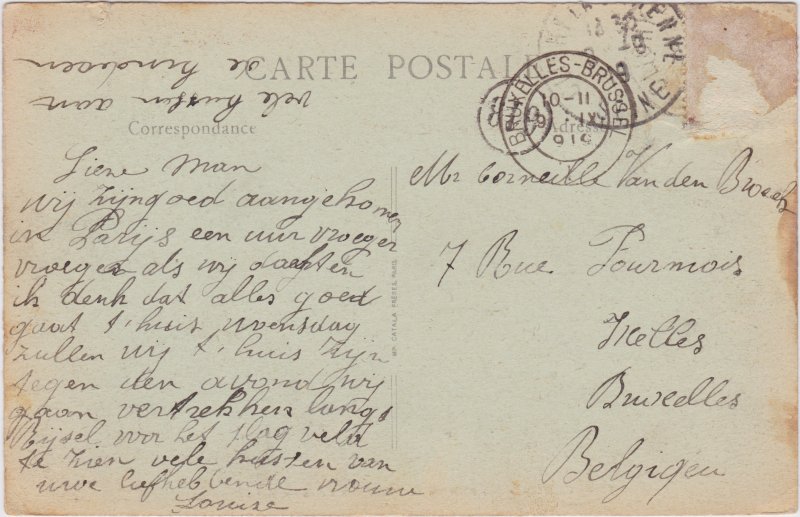 CARTE POSTALE
Correspondance
Adresse
Lieve Man
wij zijn goed aangekomen
in Parijs een uur vroeger
vroeger als wij dachten
ik denk dat alles goed
gaat t'huis woensdag
zullen wij t'huis zijn
tegen den avond wij
gaan vertrekken langs
Rijsel voor het slag veld
te zien vele kusten van
uwe liefhebbende vrouw
Louise
vele kusten aan
de kinderen
Mr Corneille Van den Broeck
7 Rue Fourmois
Ixelles
Bruxelles
Belgigeu
BRUXELLES-BRUSSEL
10-11
IX
919
IMP. CATALA FRÈRES, PARIS